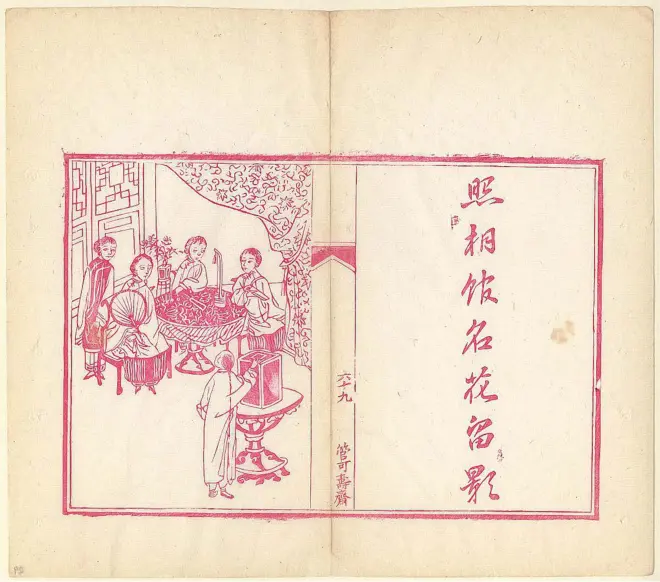 照相馆名花留影
六十九
管可壽齋
P2